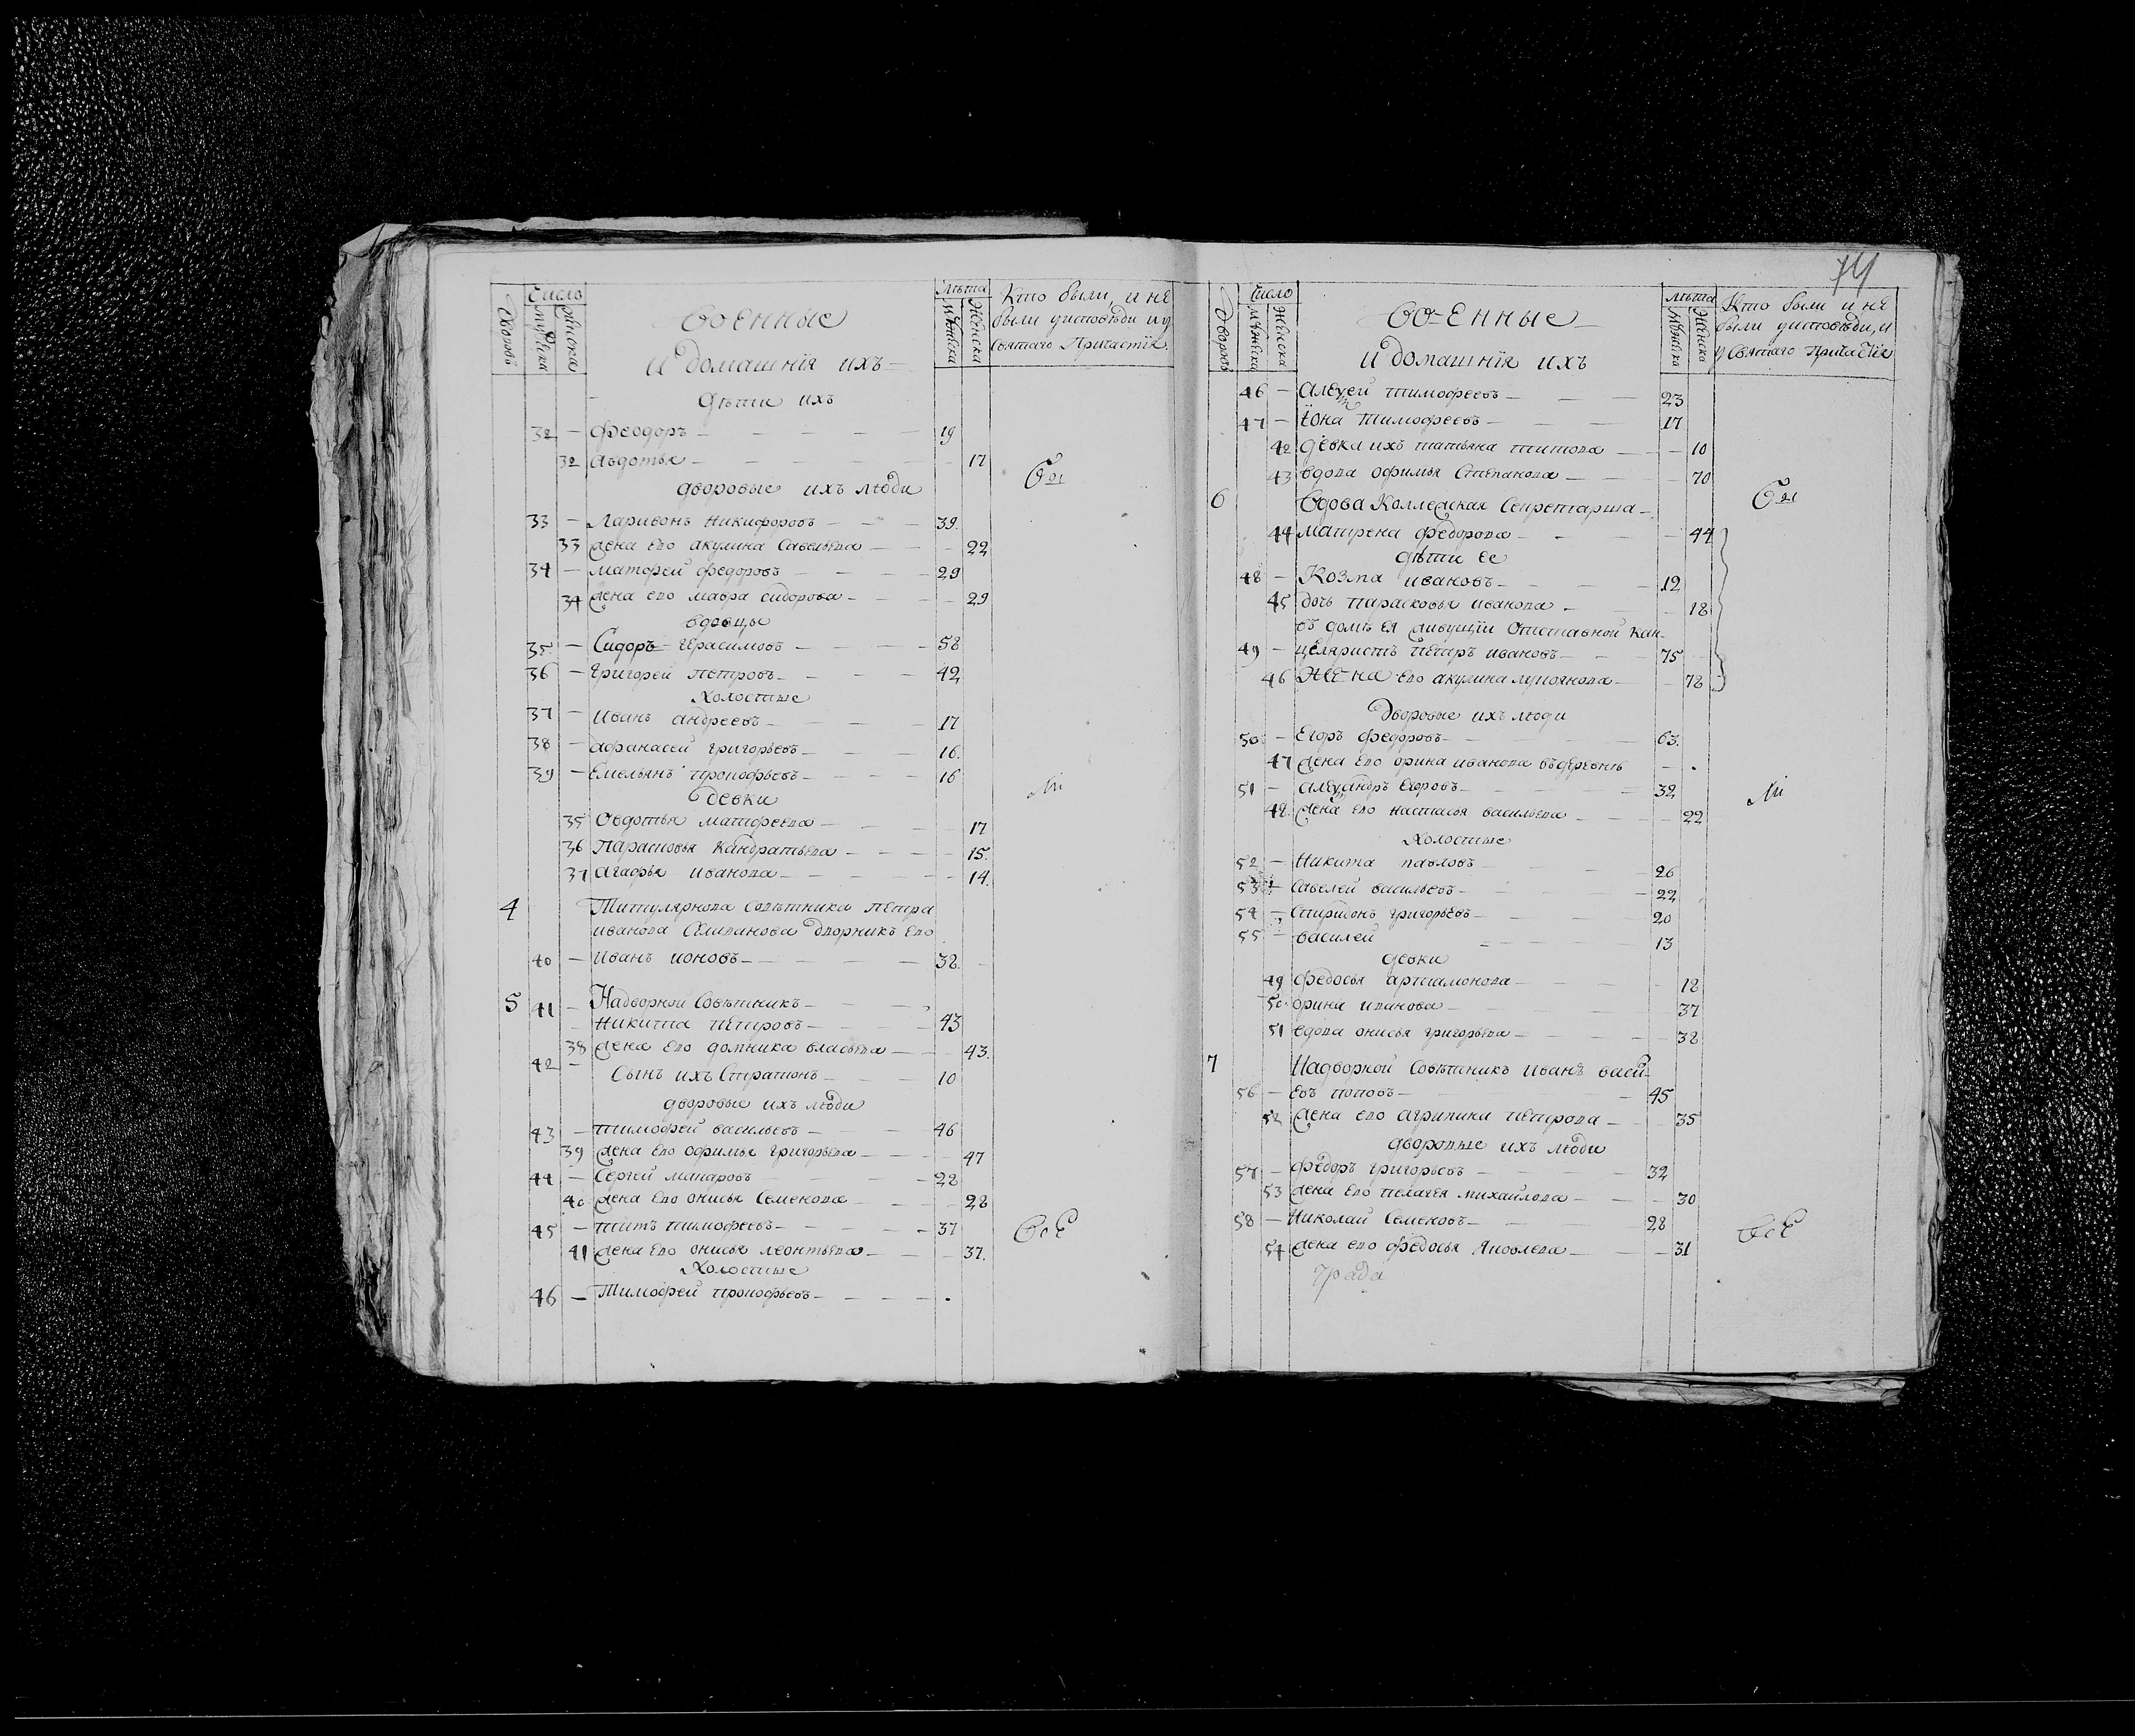 Число
Дворовъ
мужеска
женска
Военные
и домашнїя ихъ
лѣта
мужеска
женски
Кто были, и не
были уисповѣди и у
святаго Причастїя.
дѣти ихъ
32 — Феодоръ — 19
32 Авдотья — 17
дворовые ихъ люди
33 — Ларивонъ Никифоровъ — 39.
33 жена его акулина Савельева — 22
34 — матфей федоровъ — 29
34 жена его мавра сидорова — 29
вдовцы
35 — Сидоръ Герасимовъ — 58
36 — Григорей петровъ — 42
Холостые
37 — Иванъ андреевъ — 17
38 — афанасей григорьевъ — 16.
39 — Емельянъ прокофьевъ — 16
девки
35 Овдотья матфеева — 17
36 Парасковья Кандратьева — 15.
37 агафья иванова — 14.
4 Титулярнова Совѣтника петра
иванова дворникъ его
40 — Иванъ ионовъ — 38.
5 41 — Надворной Совѣтникъ —
Никита петровъ — 43
38 жена его домника власьева — 43.
42 — Сынъ ихъ — 10
дворовые ихъ люди
43 — тимофей васильевъ — 46
39 жена его офимья григорьева — 47
44 — Сергей макаровъ — 28
40 жена его онисья Семенова — 28
45 — титъ тимофеевъ — 37
41 жена его онисья леонтьева — 37.
Холостые
46 — Тимофей прокофьевъ — .
бы
ли
всЕ
74
Число
Дворовъ
мужеска
женска
Во-Енные
и домашнїя ихъ
лѣта
мужеска
женска
Кто были и не
были уисповѣди, и
у Святаго Причастїя
46 — Алексей тимофеевъ — 23
47 — їона тимофеевъ — 17
42 девка ихъ татьяна титова — 10
43 вдова офимья Степанова — 70
6 Вдова Коллежская Секретарша —
44 матрена федорова — 44
дѣти ее
48 — Козма ивановъ — 12
45 дочь парасковья иванова — 18
въ домѣ ея живущїи Отставной кан-
49 — целяристъ петръ ивановъ — 75
46 Жена его акулина лукоянова — 78
Дворовые ихъ люди
50 — Егоръ федоровъ — 63.
47 жена его орина иванова въ деревнѣ — .
51 — александръ Егоровъ — 32
48. жена его настасья васильева — 22
Холостые
52 — Никита павловъ — 26
53 — Савелей васильевъ — 22
54 — Спиридонъ григорьевъ — 20
55 — василей — 13
девки
49 федосья артамонова — 18
50. орина иванова — 37
51 вдова онисья григорьева — 38
7 Надворной Совѣтникъ иванъ васи-
56 — евъ поповъ — 45
52 жена его агрипина петрова — 35
дворовые ихъ люди
57 — федоръ григорьевъ — 32
53 жена его пелагея михайлова — 30
58 — Николай Семеновъ — 28
54 жена его федосья яковлева — 31
града
бы
ли
всЕ